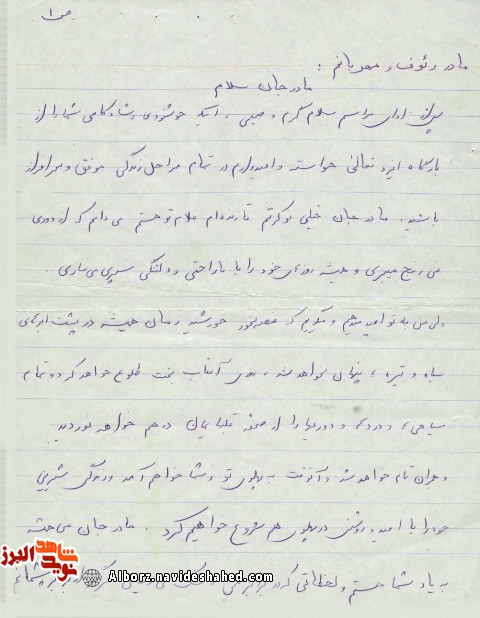 ص ۱
مادر رئوف و مهربانم :
مادر جان سلام
پس از ادای مراسم سلام گرم و صمیمی ، امید خوشنودی و شادکامی شما را از
بارگاه ایزد تعالی خواسته و امیدوارم در تمام مراحل زندگی موفق و سرافراز
باشید . مادر جان خیلی نوکرتم تا زنده‌ام غلام تو هستم می دانم که از دوری
من رنج میبری و همیشه روزهای خود را با ناراحتی و دلتنگی سپری می سازی .
ولی من به تو امید میدهم و میگویم که خورشید زمان همیشه در پشت ابرهای
سیاه و تیره پنهان نخواهد شد ، روزی آفتاب بخت طلوع خواهد کرد و تمام
سیاهی ها و دردها و دوریها را از صفحه قلبهایمان درهم خواهد نوردید
هجران تمام خواهد شد و آنوقت به پهلوی تو و شما خواهم آمد و زندگی شیرین
خود را با امید و روشنی در پهلوی هم شروع خواهیم کرد . مادر جان من همیشه
به یاد شما هستم و لحظاتی که
شاهد
نوید
البرز
Alborz.navideshahed.com